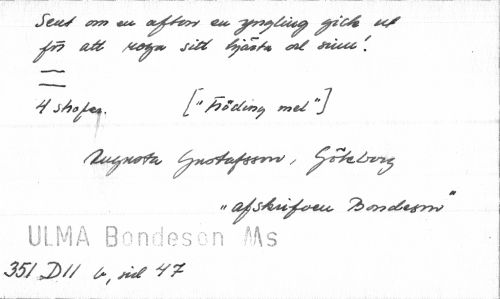 Sent om en afton en yngling gick ut
för att roga sitt hjärta och sinn'.
4 strofer. ["Fröding mel"]
Augusta Gustafsson, Göteborg
"afskrifven Bondeson"
ULMA Bondeson Ms
351 D11 b, sid 47